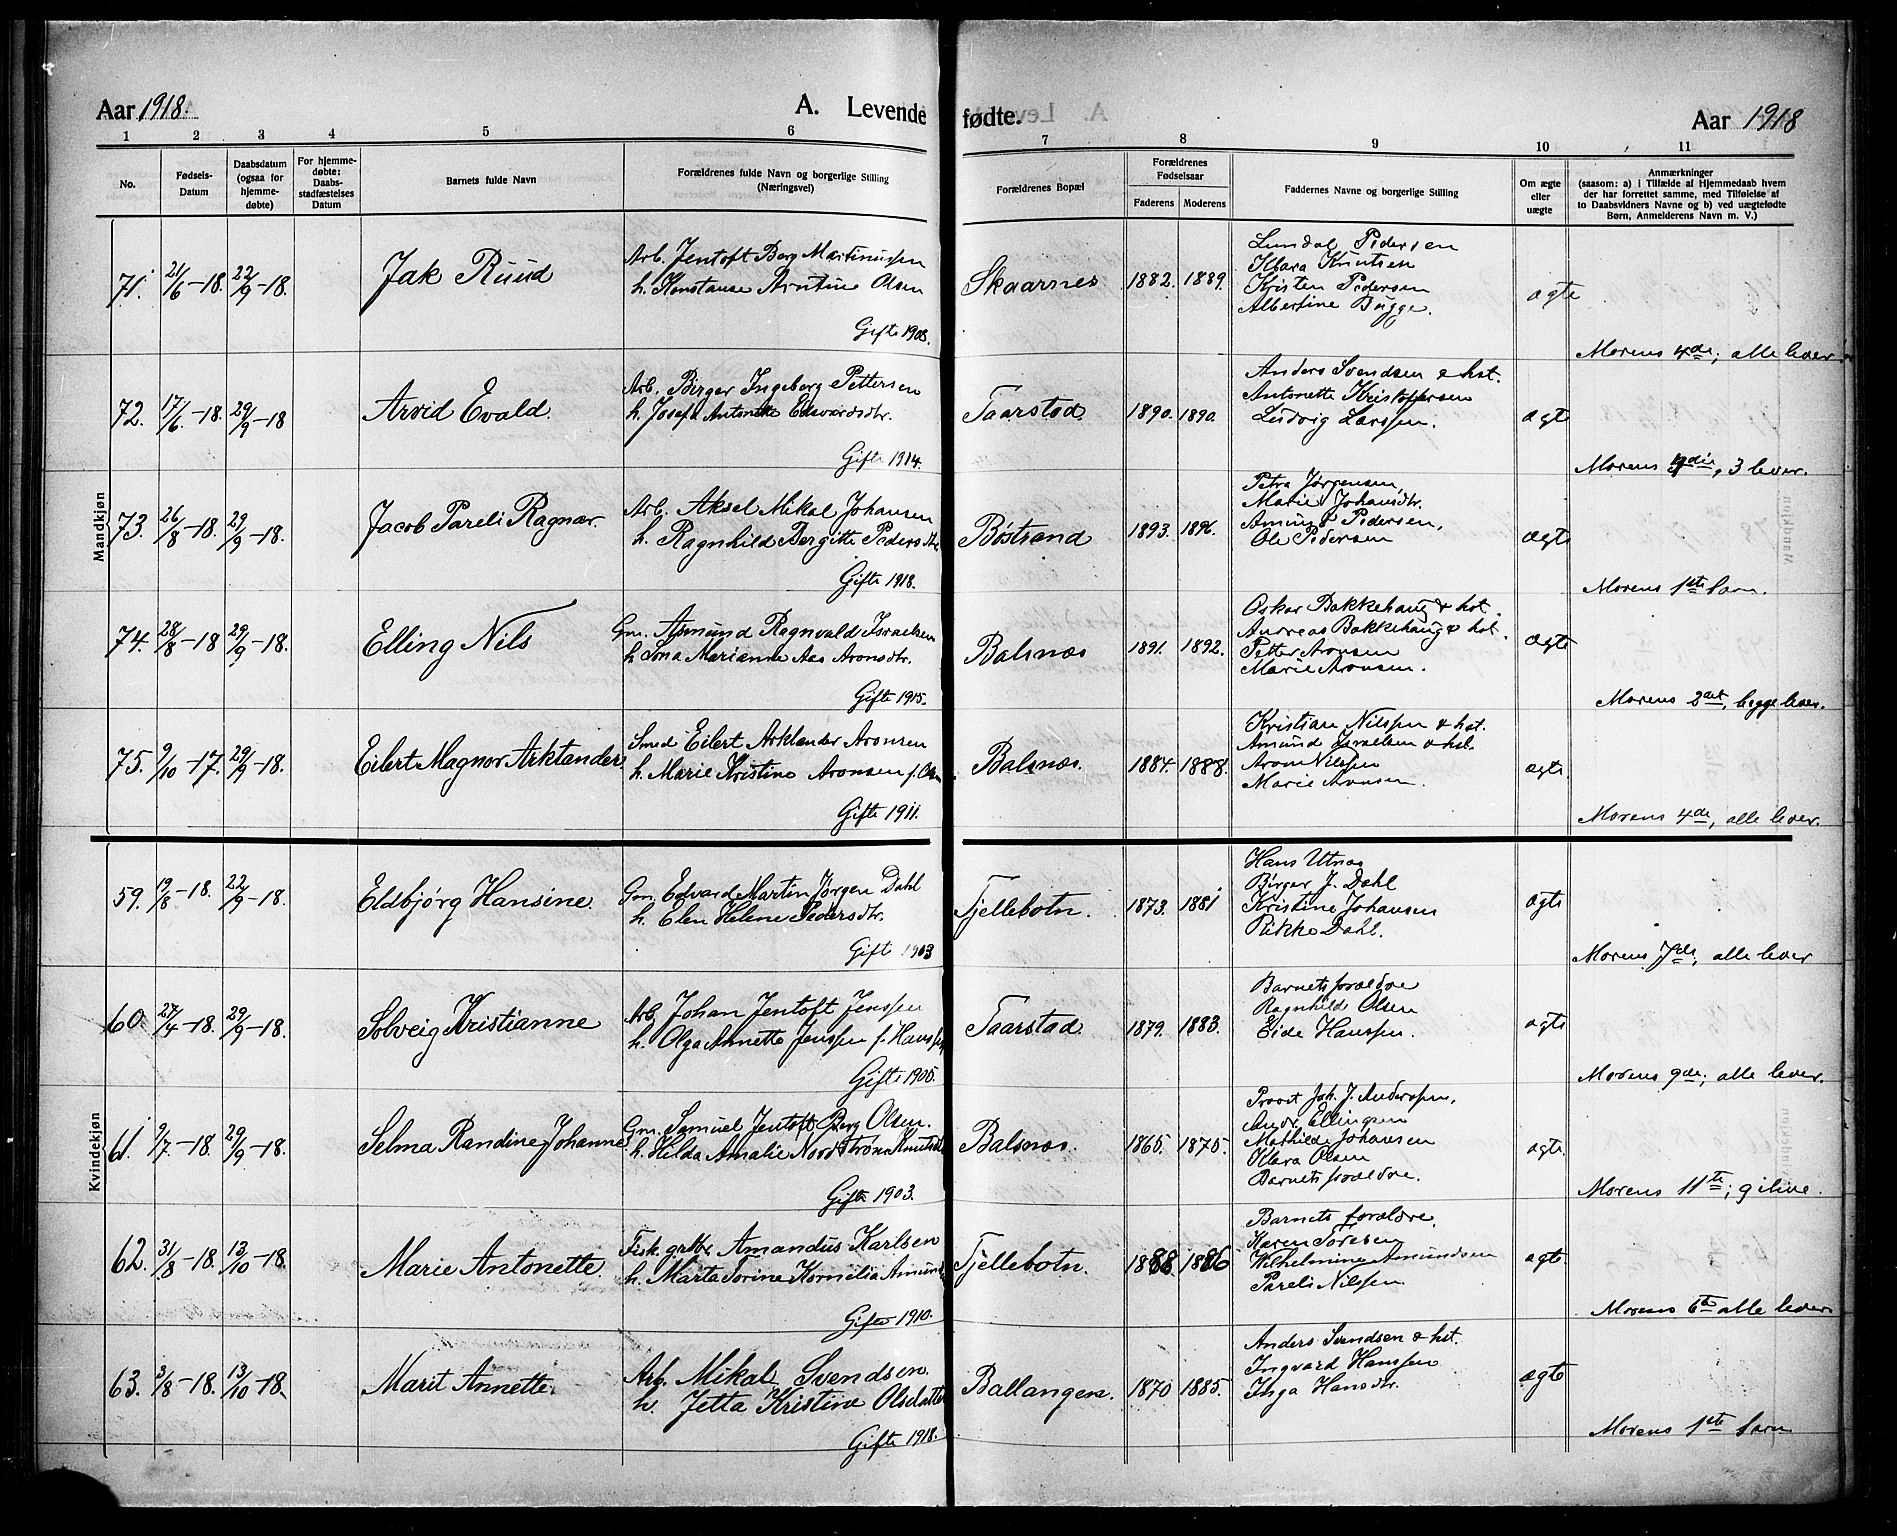 Aar 1918. A. Levende fødte. Aar 1918
1 2 3 4 5 6 7 8 9 10 11
No.
Fødsels-Datum
Daabsdatum (ogsaa for hjemme-døbte)
For hjemme-døbte: Daabs-stadfæstelses Datum
Barnets fulde Navn
Forældrenes fulde Navn og borgerlige Stilling (Næringsvei)
Forældrenes Bopæl
Forældrenes Fødselsaar
Faderens Moderens
Faddernes Navne og borgerlige Stilling
Om ægte eller uægte
Anmærkninger
(saasom: a) i Tilfælde af Hjemmedaab hvem
der har forrettet samme, med Tilføielse af
to Daabsvidners Navne og b) ved uægtefødte
Børn, Anmelderens Navn m. V.)
Mandkjøn
71. 21/6-18. 22/9-18. Jak Ruud
Arb. Jentoft Berg Martinussen
h. Konstanse Arntine Olsen
Gifte 1908.
Skaarnes 1882. 1889.
Lundal Pedersen
Klara Knutsen
Kristen Pedersen
Albertine Bugge.
ægte
Morens 4de; alle lever.
72. 17/6-18. 29/9-18 Arvid Evald.
Arb. Birger Ingeberg Pettersen
h. Josefa Antonette Edvardsdtr.
Gifte 1914.
Taarstad 1890. 1890.
Anders Svendsen & hst.
Antonette Kristoffersen
Ludvig Larssen.
ægte
Morens 4die, 3 lever.
73. 26/8-18. 29/9-18. Jacob Pareli Ragnar.
Arb. Aksel Mikal Johansen
h. Ragnhild Bergitte Pedersdtr.
Gifte 1918.
Bøstrand 1893. 1896.
Petra Jørgensen,
Marie Johansdtr.
Amund Pedersen,
Ole Pedersen
ægte
Morens 1ste barn.
74. 28/8-18 29/9-18. Elling Nils
Gm. Asmund Ragnvald Israelsen
h. Jona Marianne Aas Aronsdtr.
Gifte 1915.
Balsnæs 1891. 1892.
Oskar Bakkehaug & hst.
Andreas Bakkehaug & hst.
Petter Aronsen
Marie Aronsen.
ægte
Morens 2det, begge lever.
75. 9/10-17. 29/9-18. Eilert Magnor Arktander
Smed Eilert Arktander Aronsen
h. Marie Kristine Aronsen f. Olsen
Gifte 1911.
Balsnæs. 1884. 1888.
Kristian Nilssen & hst.
Amund Israelsen & hst.
Aron Nilssen
Marie Aronsen.
ægte.
Morens 4de, alle lever.
Kvindekjøn
59. 19/8-18. 22/9-18. Eldbjørg Hansine.
Gm. Edvard Martin Jørgen Dahl
h. Elen Helene Pedersdtr.
Gifte 1903
Fjellebotn. 1873. 1881
Hans Utnæs
Birger J. Dahl
Kristine Johansen
Rikke Dahl.
ægte
Morens 7de, alle lever
60. 27/4-18. 29/9-18. Solveig Kristianne
Arb. Johan Jentoft Jenssen
h. Olga Annette Jenssen f. Hanssen
Gifte 1905.
Taarstad 1879. 1883.
Barnets forældre
Ragnhild Olsen
Eide Hanssen.
ægte
Morens 9de; alle lever.
61. 9/7-18. 29/9-18. Selma Randine Johanne
Gm. Samuel Jentoft Berg Olsen.
h. Hilda Amalie Nordstrøm Knutsdtr.
Gifte 1903.
Balsnæs. 1865. 1875.
Provst Joh. J. Anderssen,
Andr. Ellingsen
Mathilde Johansen
Klara Olsen
Barnets forældre.
ægte.
Morens 11te; 9 ilive.
62. 31/8-18. 13/10-18. Marie Antonette.
Fisk. grbr. Amandus Karlsen
h. Marta Torine Kornelia Amunds
Gifte 1910.
Fjellebotn. 1888 1886
Barnets forældre,
Karen Toresen
Wilhelmine Amundsen
Pareli Nilssen.
ægte
Morens 6te alle lever
63. 3/8-18. 13/10-18. Marit Annette.
Arb. Mikal Svendsen.
h. Jetta Kristine Olsdatter
Gifte 1918.
Ballangen. 1870 1885.
Anders Svendsen & hst.
Ingvard Hanssen
Inga Hansdtr.
ægte
Morens 1ste barn